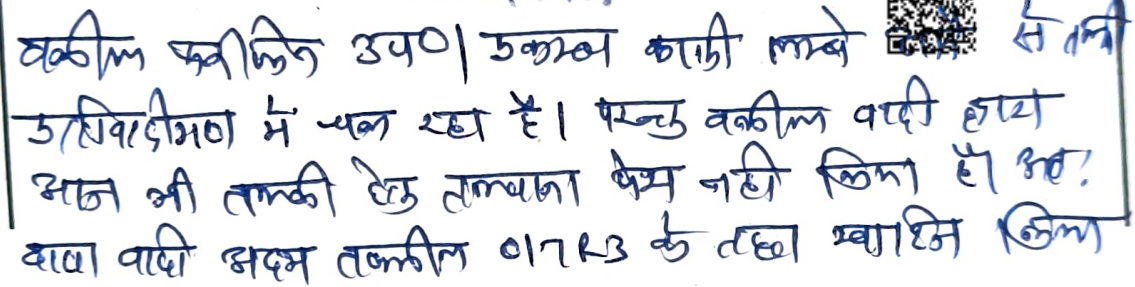 वकील फरीकेन उप0। प्रकरण काफी लम्बे से तलबी
प्रतिवादीगण में चल रहा है। परन्तु वकील वादी द्वारा
आज भी तलबी हेतु तलवाना पेश नही किया है। अतः
दावा वादी अदम तकमील O17R3 के तहत खारिज किया